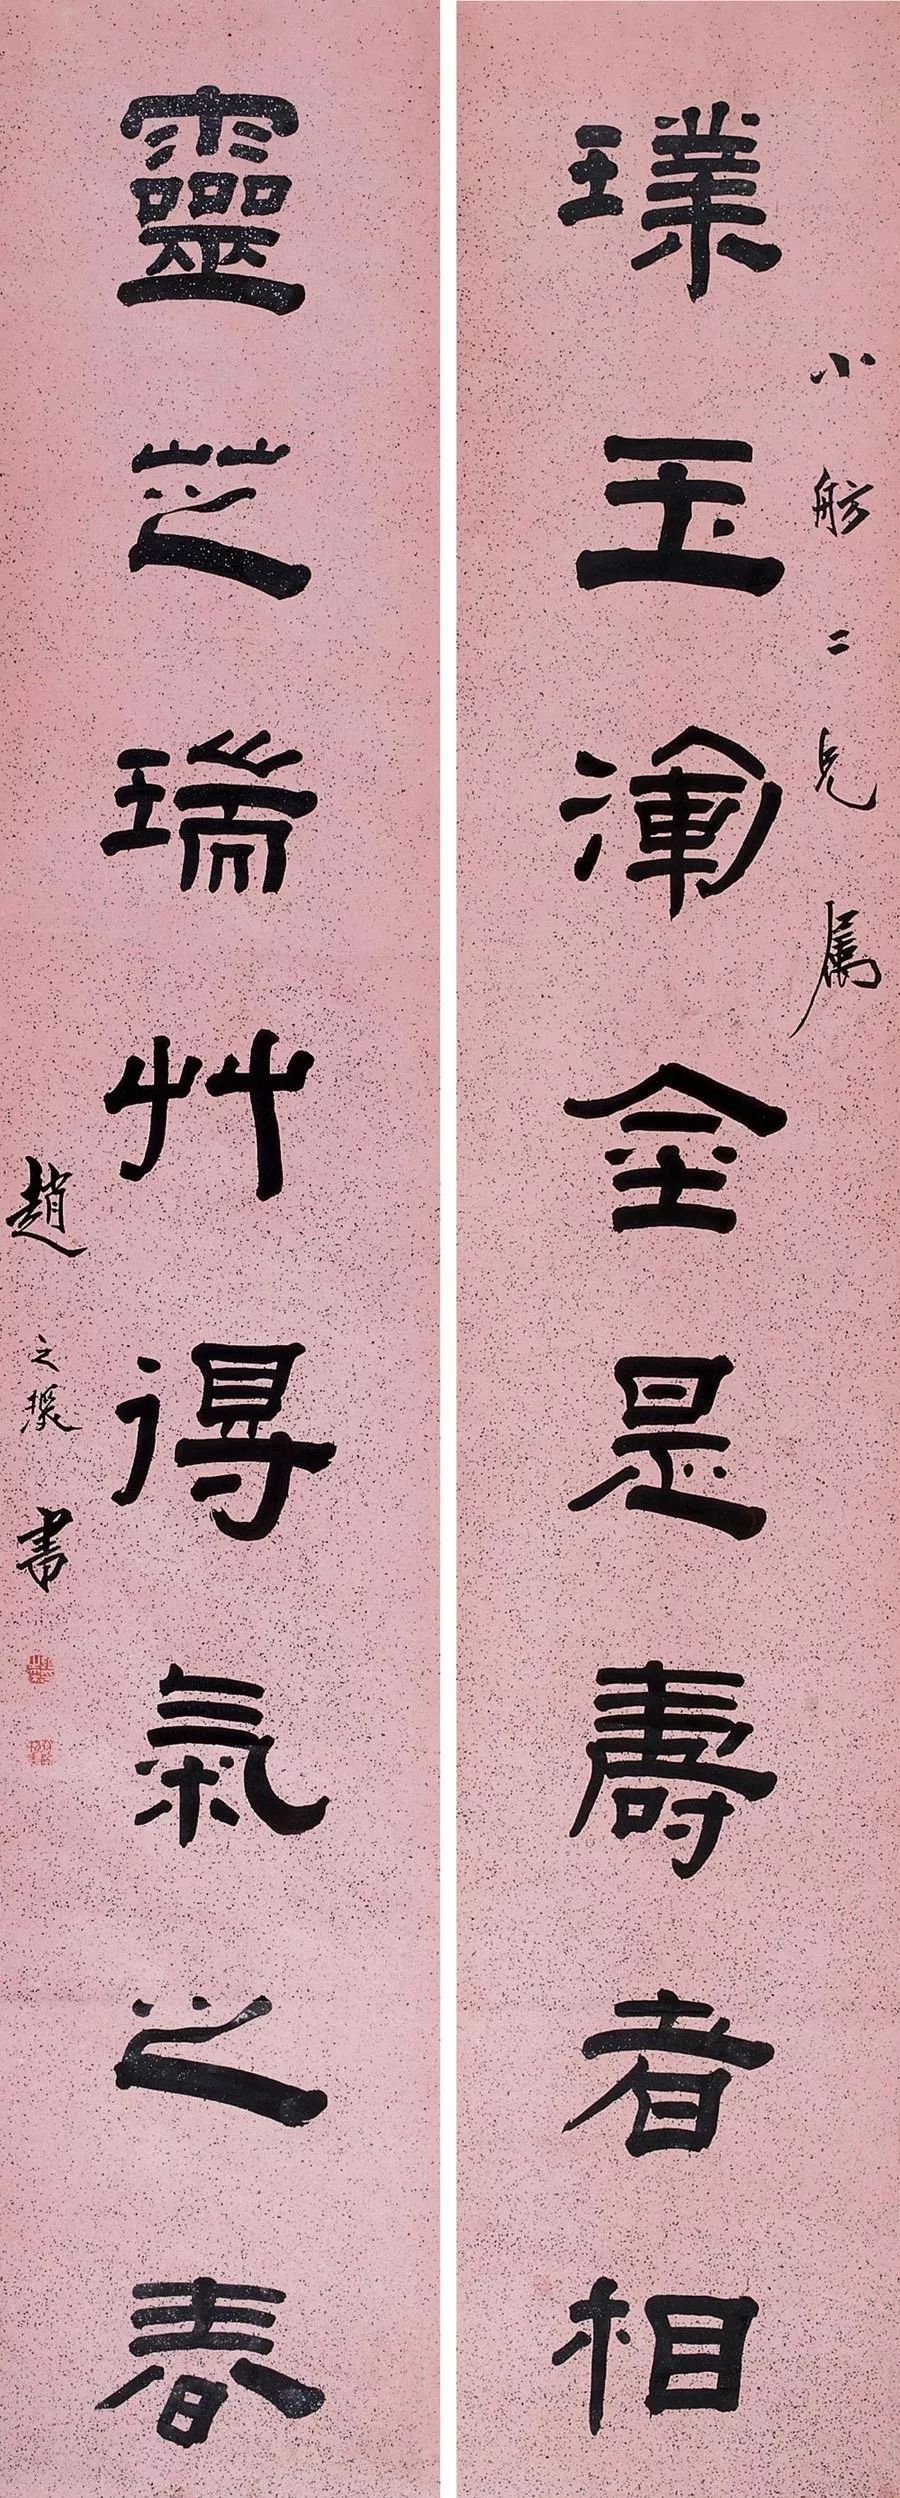 璞玉渾金是壽者相
小舫二兄属
靈芝瑞艸得氣之春
趙
之
書